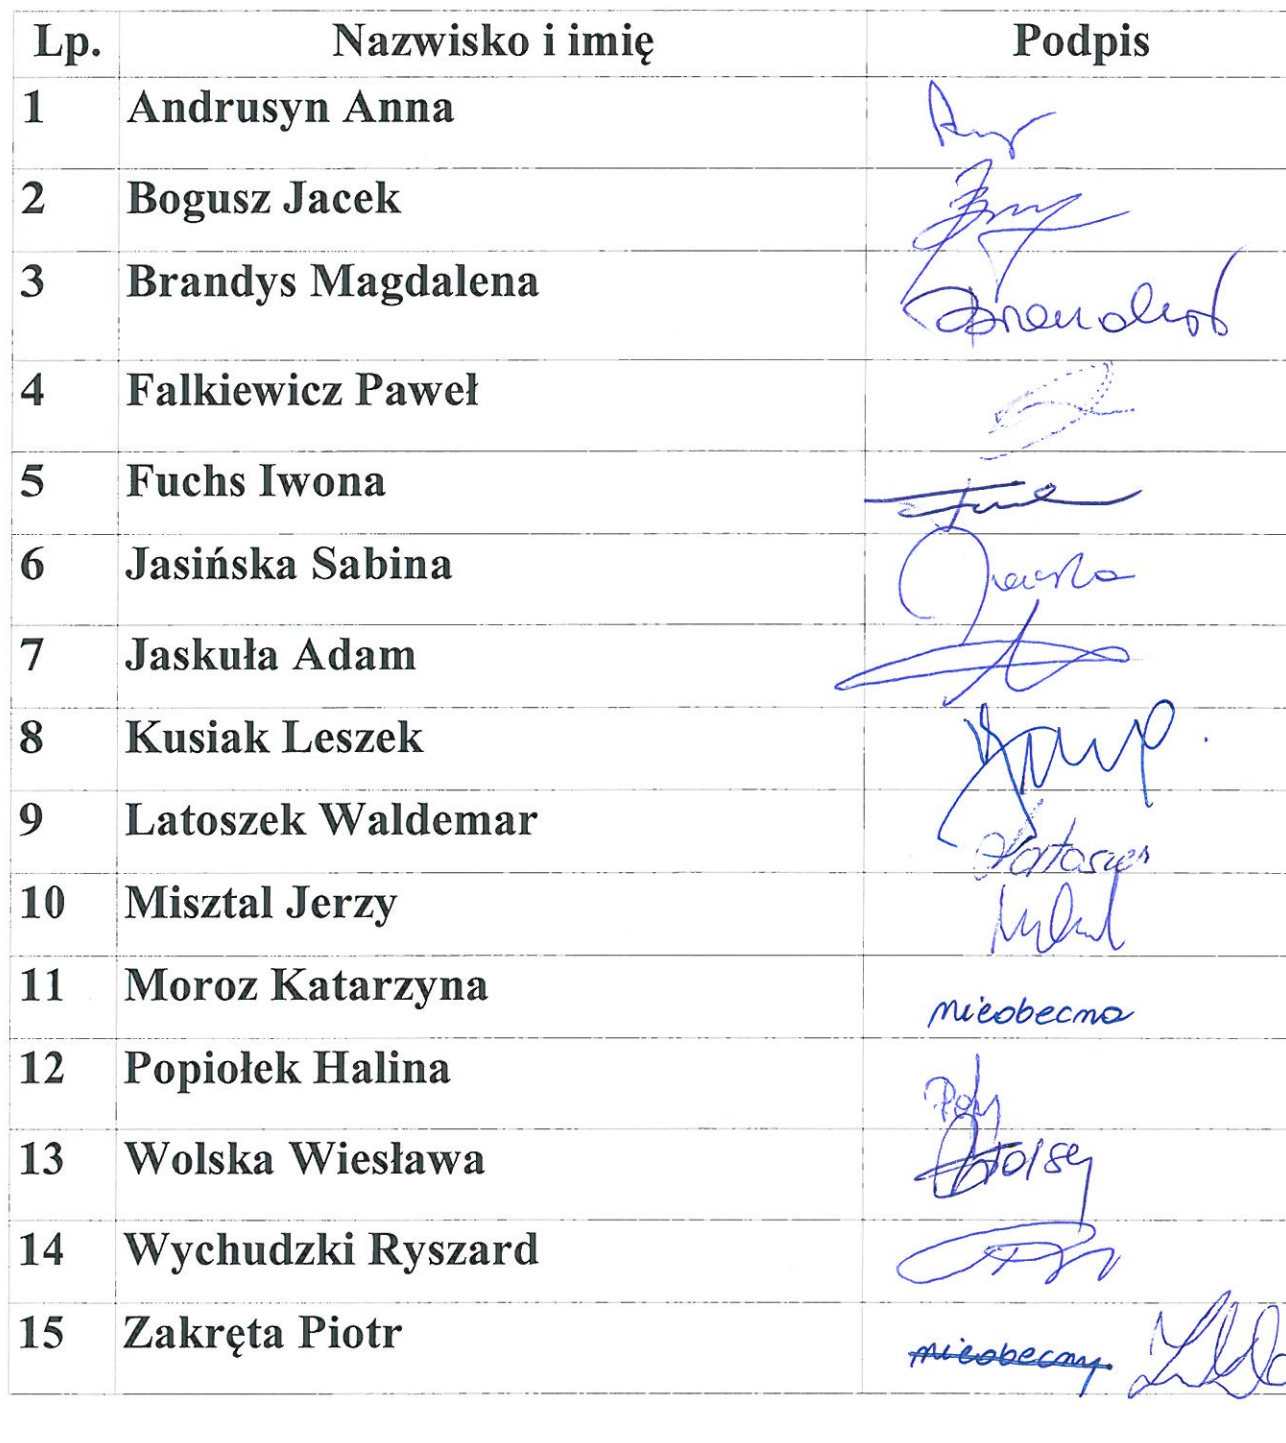 Lp. Nazwisko i imię Podpis
1 Andrusyn Anna
2 Bogusz Jacek
3 Brandys Magdalena
4 Falkiewicz Paweł
5 Fuchs Iwona
6 Jasińska Sabina
7 Jaskuła Adam
8 Kusiak Leszek
9 Latoszek Waldemar
10 Misztal Jerzy
11 Moroz Katarzyna nieobecna
12 Popiołek Halina
13 Wolska Wiesława
14 Wychudzki Ryszard
15 Zakręta Piotr nieobecny.